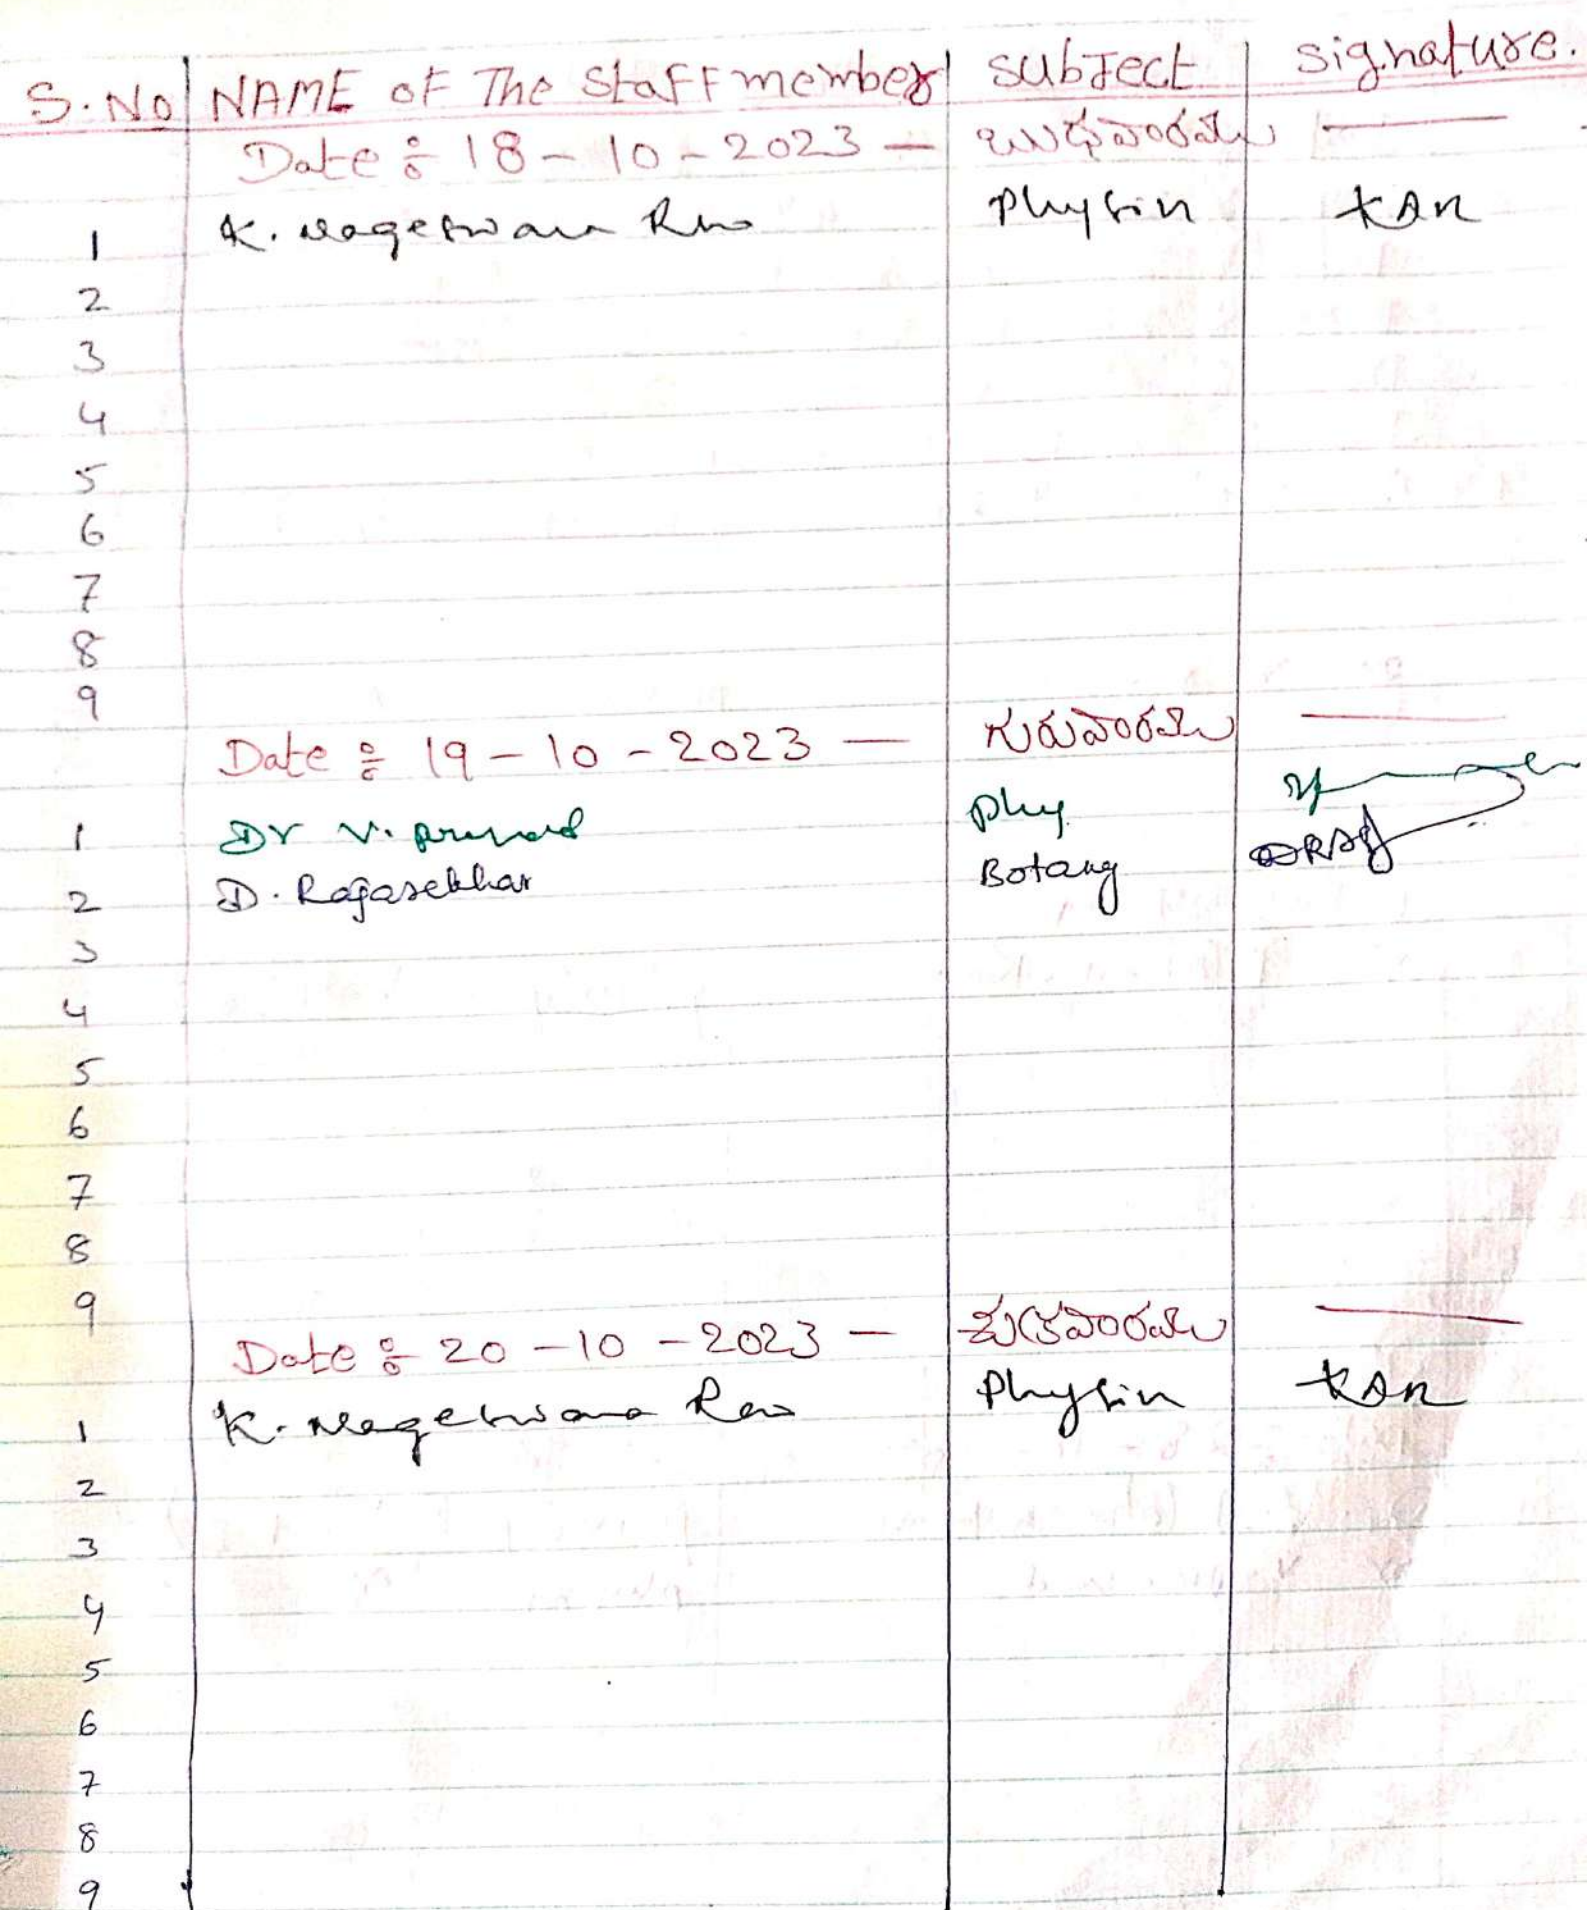 S.No NAME of The Staff member subject signature.
Date : 18-10-2023 — బుధవారము —
1 K. Nageswara Rao Physics KNR
2
3
4
5
6
7
8
9
Date : 19-10-2023 — గురువారము —
1 Dr V. Prasad Phy
2 D. Rajasekhar Botany
3
4
5
6
7
8
9
Date : 20-10-2023 — శుక్రవారము —
1 K. Nageswara Rao Physics KNR
2
3
4
5
6
7
8
9